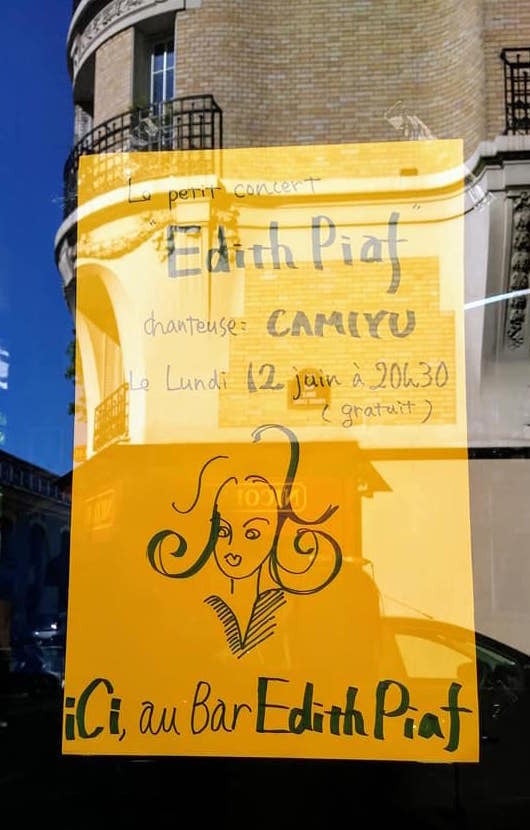 Le petit concert
"Edith Piaf"
chanteuse: CAMIYU
Le Lundi 12 juin à 20h30
(gratuit)
iCi, au Bar Edith Piaf